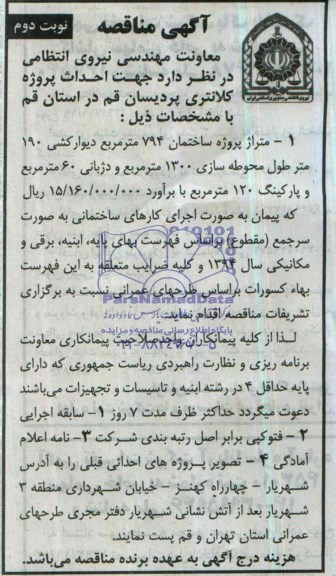 آگهی مناقصه
نوبت دوم
معاونت مهندسی نیروی انتظامی
در نظر دارد جهت احداث پروژه
کلانتری پردیسان قم در استان قم
با مشخصات ذیل :
۱ - متراژ پروژه ساختمان ۷۹۴ مترمربع دیوارکشی ۱۹۰
متر طول محوطه سازی ۱۳۰۰ مترمربع و دژبانی ۶۰ مترمربع
و پارکینگ ۱۲۰ مترمربع با برآورد ۱۵/۱۶۰/۰۰۰/۰۰۰ ریال
که پیمان به صورت اجرای کارهای ساختمانی به صورت
سرجمع (مقطوع) براساس فهرست بهای پایه، ابنیه، برقی و
مکانیکی سال ۱۳۹۴ و کلیه ضرایب متعلقه به این فهرست
بهاء کسورات براساس طرحهای عمرانی نسبت به برگزاری
تشریفات مناقصه اقدام نماید.
ParsNamadData
پایگاه اطلاع رسانی مناقصه و مزایده
لذا از کلیه پیمانکاران واجد صلاحیت پیمانکاری معاونت
برنامه ریزی و نظارت راهبردی ریاست جمهوری که دارای
پایه حداقل ۴ در رشته ابنیه و تاسیسات و تجهیزات می‌باشند
دعوت میگردد حداکثر ظرف مدت ۷ روز ۱- سابقه اجرایی
۲ - فتوکپی برابر اصل رتبه بندی شرکت ۳- نامه اعلام
آمادگی ۴ - تصویر پروژه های احداثی قبلی را به آدرس
شهریار - چهارراه کهنز - خیابان شهرداری منطقه ۳
شهریار بعد از آتش نشانی شهریار دفتر مجری طرحهای
عمرانی استان تهران و قم پست نمایند.
هزینه درج آگهی به عهده برنده مناقصه می‌باشد.